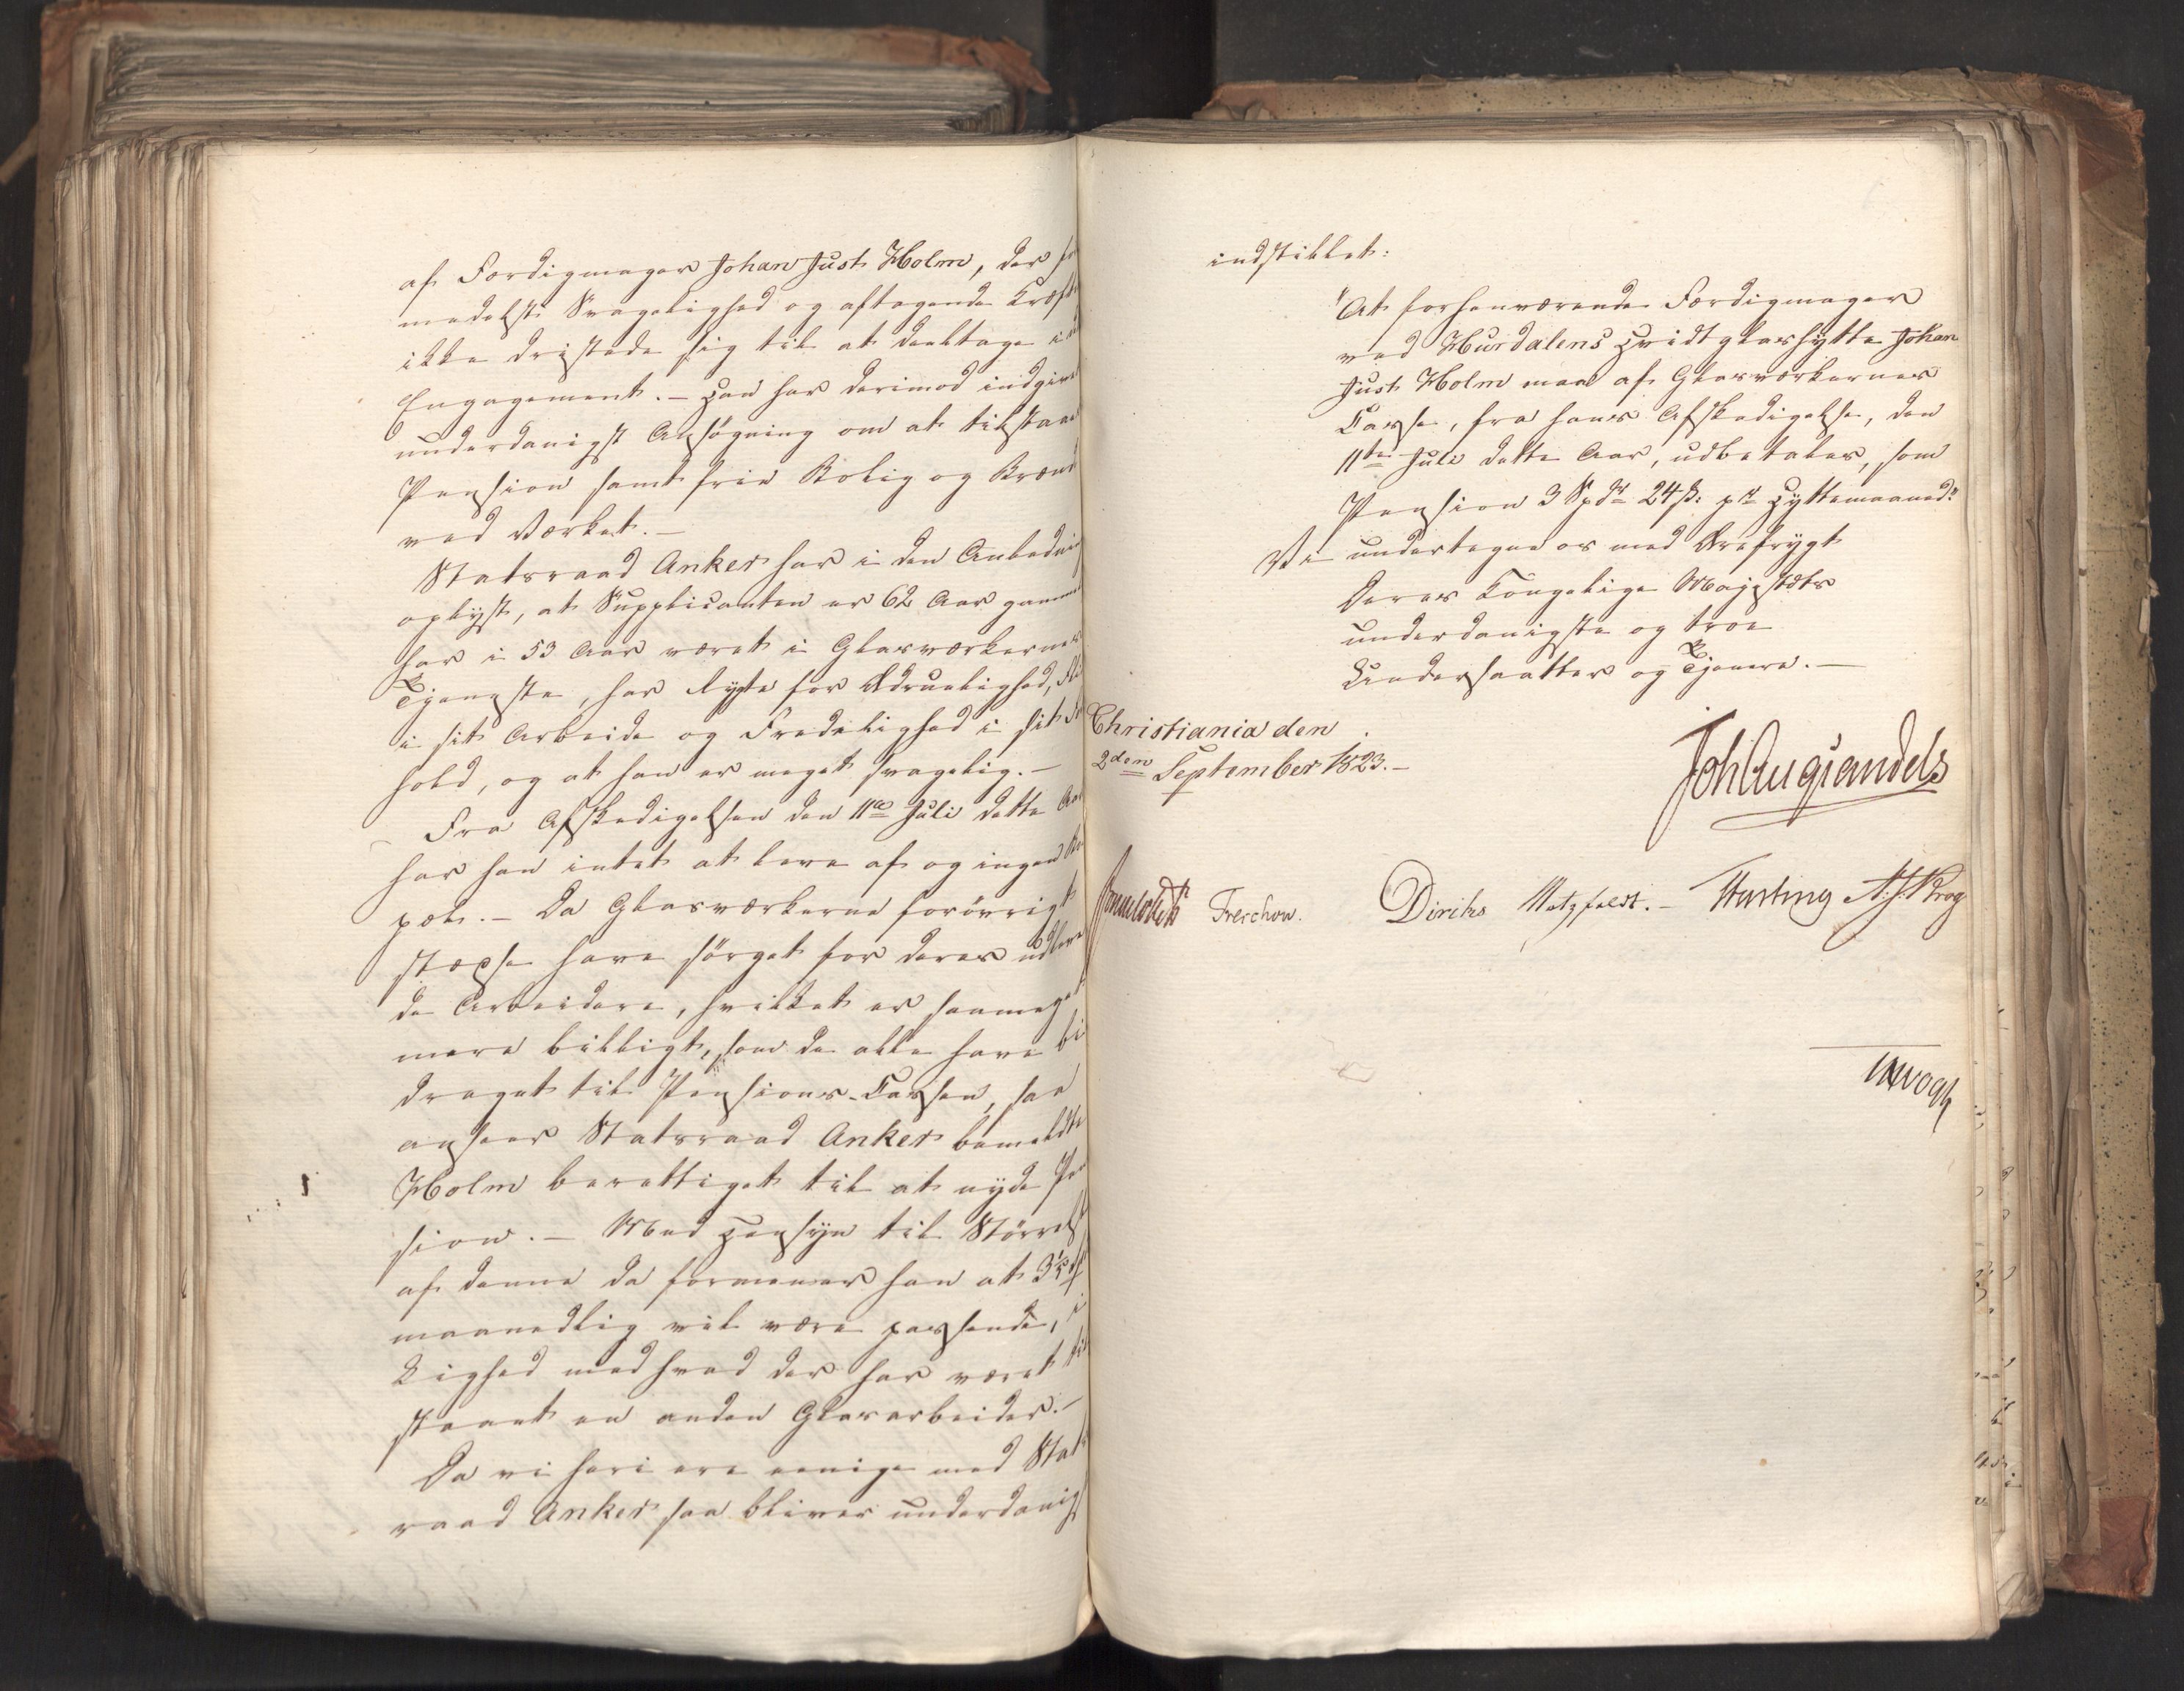 af Færdigmager Johan Just Holm, der for
medelst Svagelighed og aftagende Kræfter
ikke dristede sig til at deeltage i
Engagement. – Han har derimod indgivet
underdanigst Ansøgning om at tilstaaes
Pension samt frie Bolig og Brænde
ved Værket. –
Statsraad Anker har i den Anledning
oplyst, at Supplicanten er 62 Aar gammel
har i 53 Aar været i Glasværkernes
Tjeneste, har Rygte for Ædruelighed, Flid
i sit Arbeide og Fredelighed i sit For
hold, og at han er meget svagelig. –
Fra Afskedigelsen den 11te Juli dette Aar
har han intet at leve af og ingen Ka
pæl. – Da Glasværkerne forövrigt
stedse have sörget for deres udleve
de Arbeidere, hvilket er saameget
mere billigt, som de alle have bi
draget til Pensions-Cassen, saa
anseer Statsraad Anker bemeldte
Holm berettiget til at nyde Pen
sion. – Med Hensyn til Störrelsen
af denne da formener han at 3 1/5
maanedlig vil være passende, i
Lighed med hvad der har været til
staaet en anden Glasarbeider. –
Da vi heri ere eenige med Stats
raad Anker saa bliver underdanigst
indstillet:
"At forhenværende Færdigmager
ved Hurdalens Hvidtglashytte Johan
Just Holm maa af Glasværkernes
Casse, fra hans Afskedigelse, den
11te Juli dette Aar, udbetales, som
Pension 3 Spdr 24 ß: pr Hyttemaaned."
Vi undertegne os med Ærefrygt
Deres Kongelige Majestæts
underdanigste og troe
Undersaatter og Tjenere. –
Christiania den
2den September 1823. –
Joh Aug Sandels
Sommerhielm Treschow. Diriks Motzfeldt. – Fasting A. J. Krog
Vogt